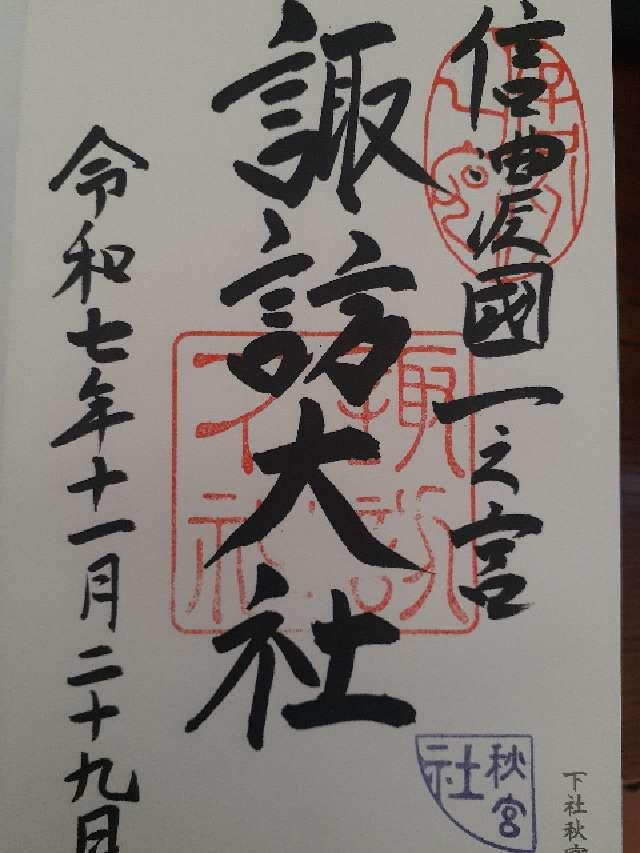 信濃國一之宮
諏訪大社
令和七年十一月二十九日
諏訪大社
秋宮
社
下社秋宮